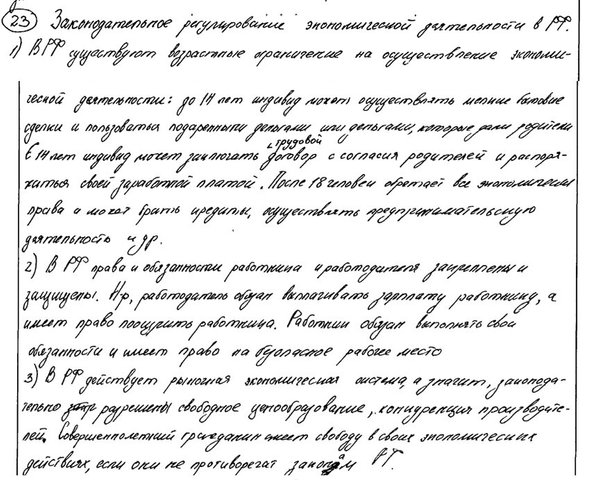 23 Законодательное регулирование экономической деятельности в РФ.
1) В РФ существуют возрастные ограничения на осуществление экономи-
ческой деятельности: до 14 лет индивид может осуществлять мелкие бытовые
сделки и пользоваться подаренными деньгами или деньгами, которые дали родители
С 14 лет индивид может заключать трудовой договор с согласия родителей и распоря-
житься своей заработной платой. После 18 человек обретает все экономические
права и может брать кредиты, осуществлять предпринимательскую
деятельность и др.
2) В РФ права и обязанности работника и работодателя закреплены и
защищены. Нр, работодатель обязан выплачивать зарплату работнику, а
имеет право поощрить работника. Работник обязан выполнять свои
обязанности и имеет право на безопасное рабочее место
3) В РФ действует рыночная экономическая система, а значит, законода-
тельно разрешены свободное ценообразование, конкуренция производите-
лей. Совершеннолетний гражданин имеет свободу в своих экономических
действиях, если они не противоречат законам РФ.